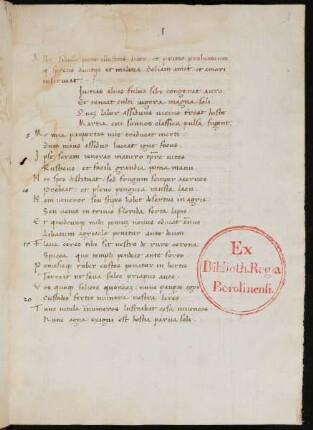 1
Diuitias alius fuluo sibi congerat auro
Et teneat culti iugera magna soli
Quem labor assiduus uicino terreat hoste
Martia cui somnos classica pulsa fugent
5 Me mea paupertas uite traducat inerti
Dum meus assiduo luceat igne focus
Ipse seram teneras maturo tempore uites
Rusticus et facili grandia poma manu
Nec spes destituat sed frugum semper aceruos
10 Prebeat et pleno pinguia musta lacu
Nam ueneror seu stipes habet desertus in agris
Seu uetus in triuio florida serta lapis
Et quodcunque mihi pomum nouus educat annus
Libatum agricole ponitur ante deum
15 Flaua ceres tibi sit nostro de rure corona
Spicea que templi pendeat ante fores
Pomosisque ruber custos ponatur in hortis
Terreat ut seua falce priapus aues
Vos quoque felicis quondam nunc pauperis agri
20 Custodes fertis munera uestra lares
Tunc uitula innumeros lustrabat cesa iuuencos
Nunc agna exigui est hostia parua soli
Ex
Biblioth. Regia
Berolinensi.